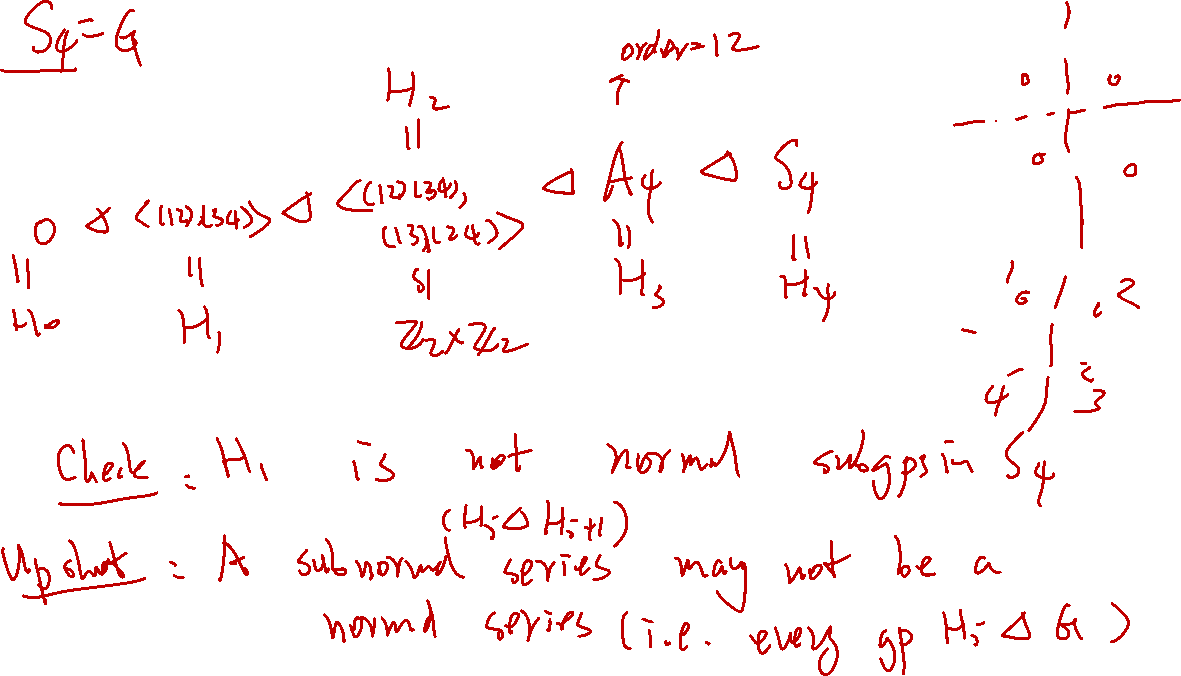 S₄ = G
order = 12
↑
H₂
||
0 ◁ <(12)(34)> ◁ <(12)(34), (13)(24)> ◁ A₄ ◁ S₄
|| || ≅ || ||
H₀ H₁ ℤ₂×ℤ₂ H₃ H₄
1 2
4 3
Check : H₁ is not normal subgps in S₄
(Hᵢ ◁ Hᵢ₊₁)
Upshot : A subnormal series may not be a
normal series (i.e. every gp Hᵢ ◁ G)